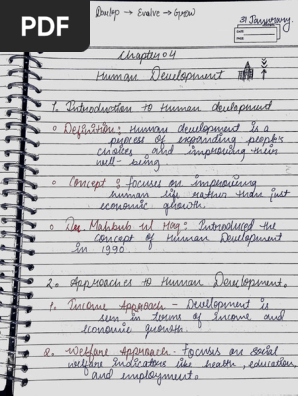 PDF
Develop → Evolve → Grow
31 January.
DATE
PAGE
Chapter 04
Human Development
1. Introduction to Human development
Definition: Human development is a
process of expanding people's
choices and improving their
well-being
Concept: focuses on improving
human life rather than just
economic growth.
Dr. Mahbub ul Haq: Introduced the
concept of Human Development
in 1990.
2. Approaches to Human Development.
1. Income Approach - Development is
seen in terms of Income and
economic growth.
2. Welfare Approach - focuses on social
welfare indicators like health, education,
and employment.